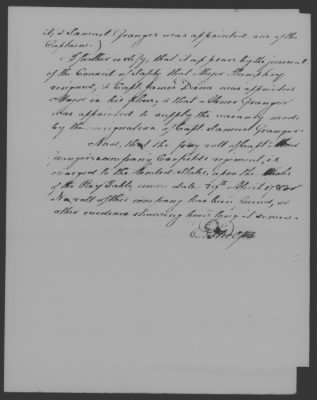 it, & Samuel Granger was appointed one of the
Captains.)
I further certify, that it appears by the journal
of the Council of Safety that Major Humphrey
resigned, & Capt. James Dana was appointed
Major in his place, & that Granger
was appointed to supply the vacancy made
by the resignation of Capt. Samuel Granger.
And, that the pay roll of Capt.
company Canfields regiment, is
charged to the United States, upon the Books
of the Pay Table, under date 29th April
No roll of this company has been found, or
other evidence showing how long it served.